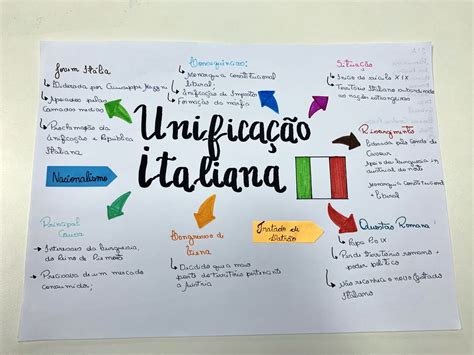 Unificação
italiana
Jovem Itália
Liderada por Giuseppe Mazzini
Apoiados pelas
Camadas médias
Proclamação da
Unificação e República
Italiana
Consequências:
Monarquia Constitucional
liberal
Unificação de Impostos
Formação da máfia
Situação
Início do século XIX
Território Italiano subordinado
as nações estrangeiras
Risorgimento
Liderada pelo Conde de
Cavour
Apoio da burguesia in
dustrial do norte
Monarquia Constitucional
liberal
Nacionalismo
Principal
Causa
Interesses da burguesia,
do Reino de Piemonte
Precisava de um mercado
consumidor;
Congresso de
Viena
Decidido que a maior
parte do território pertencia
a Áustria
Tratado de
Latrão
Questão Romana
Papa Pio IX
Perde território romano e
poder político
Não reconhece o novo Estado
Italiano